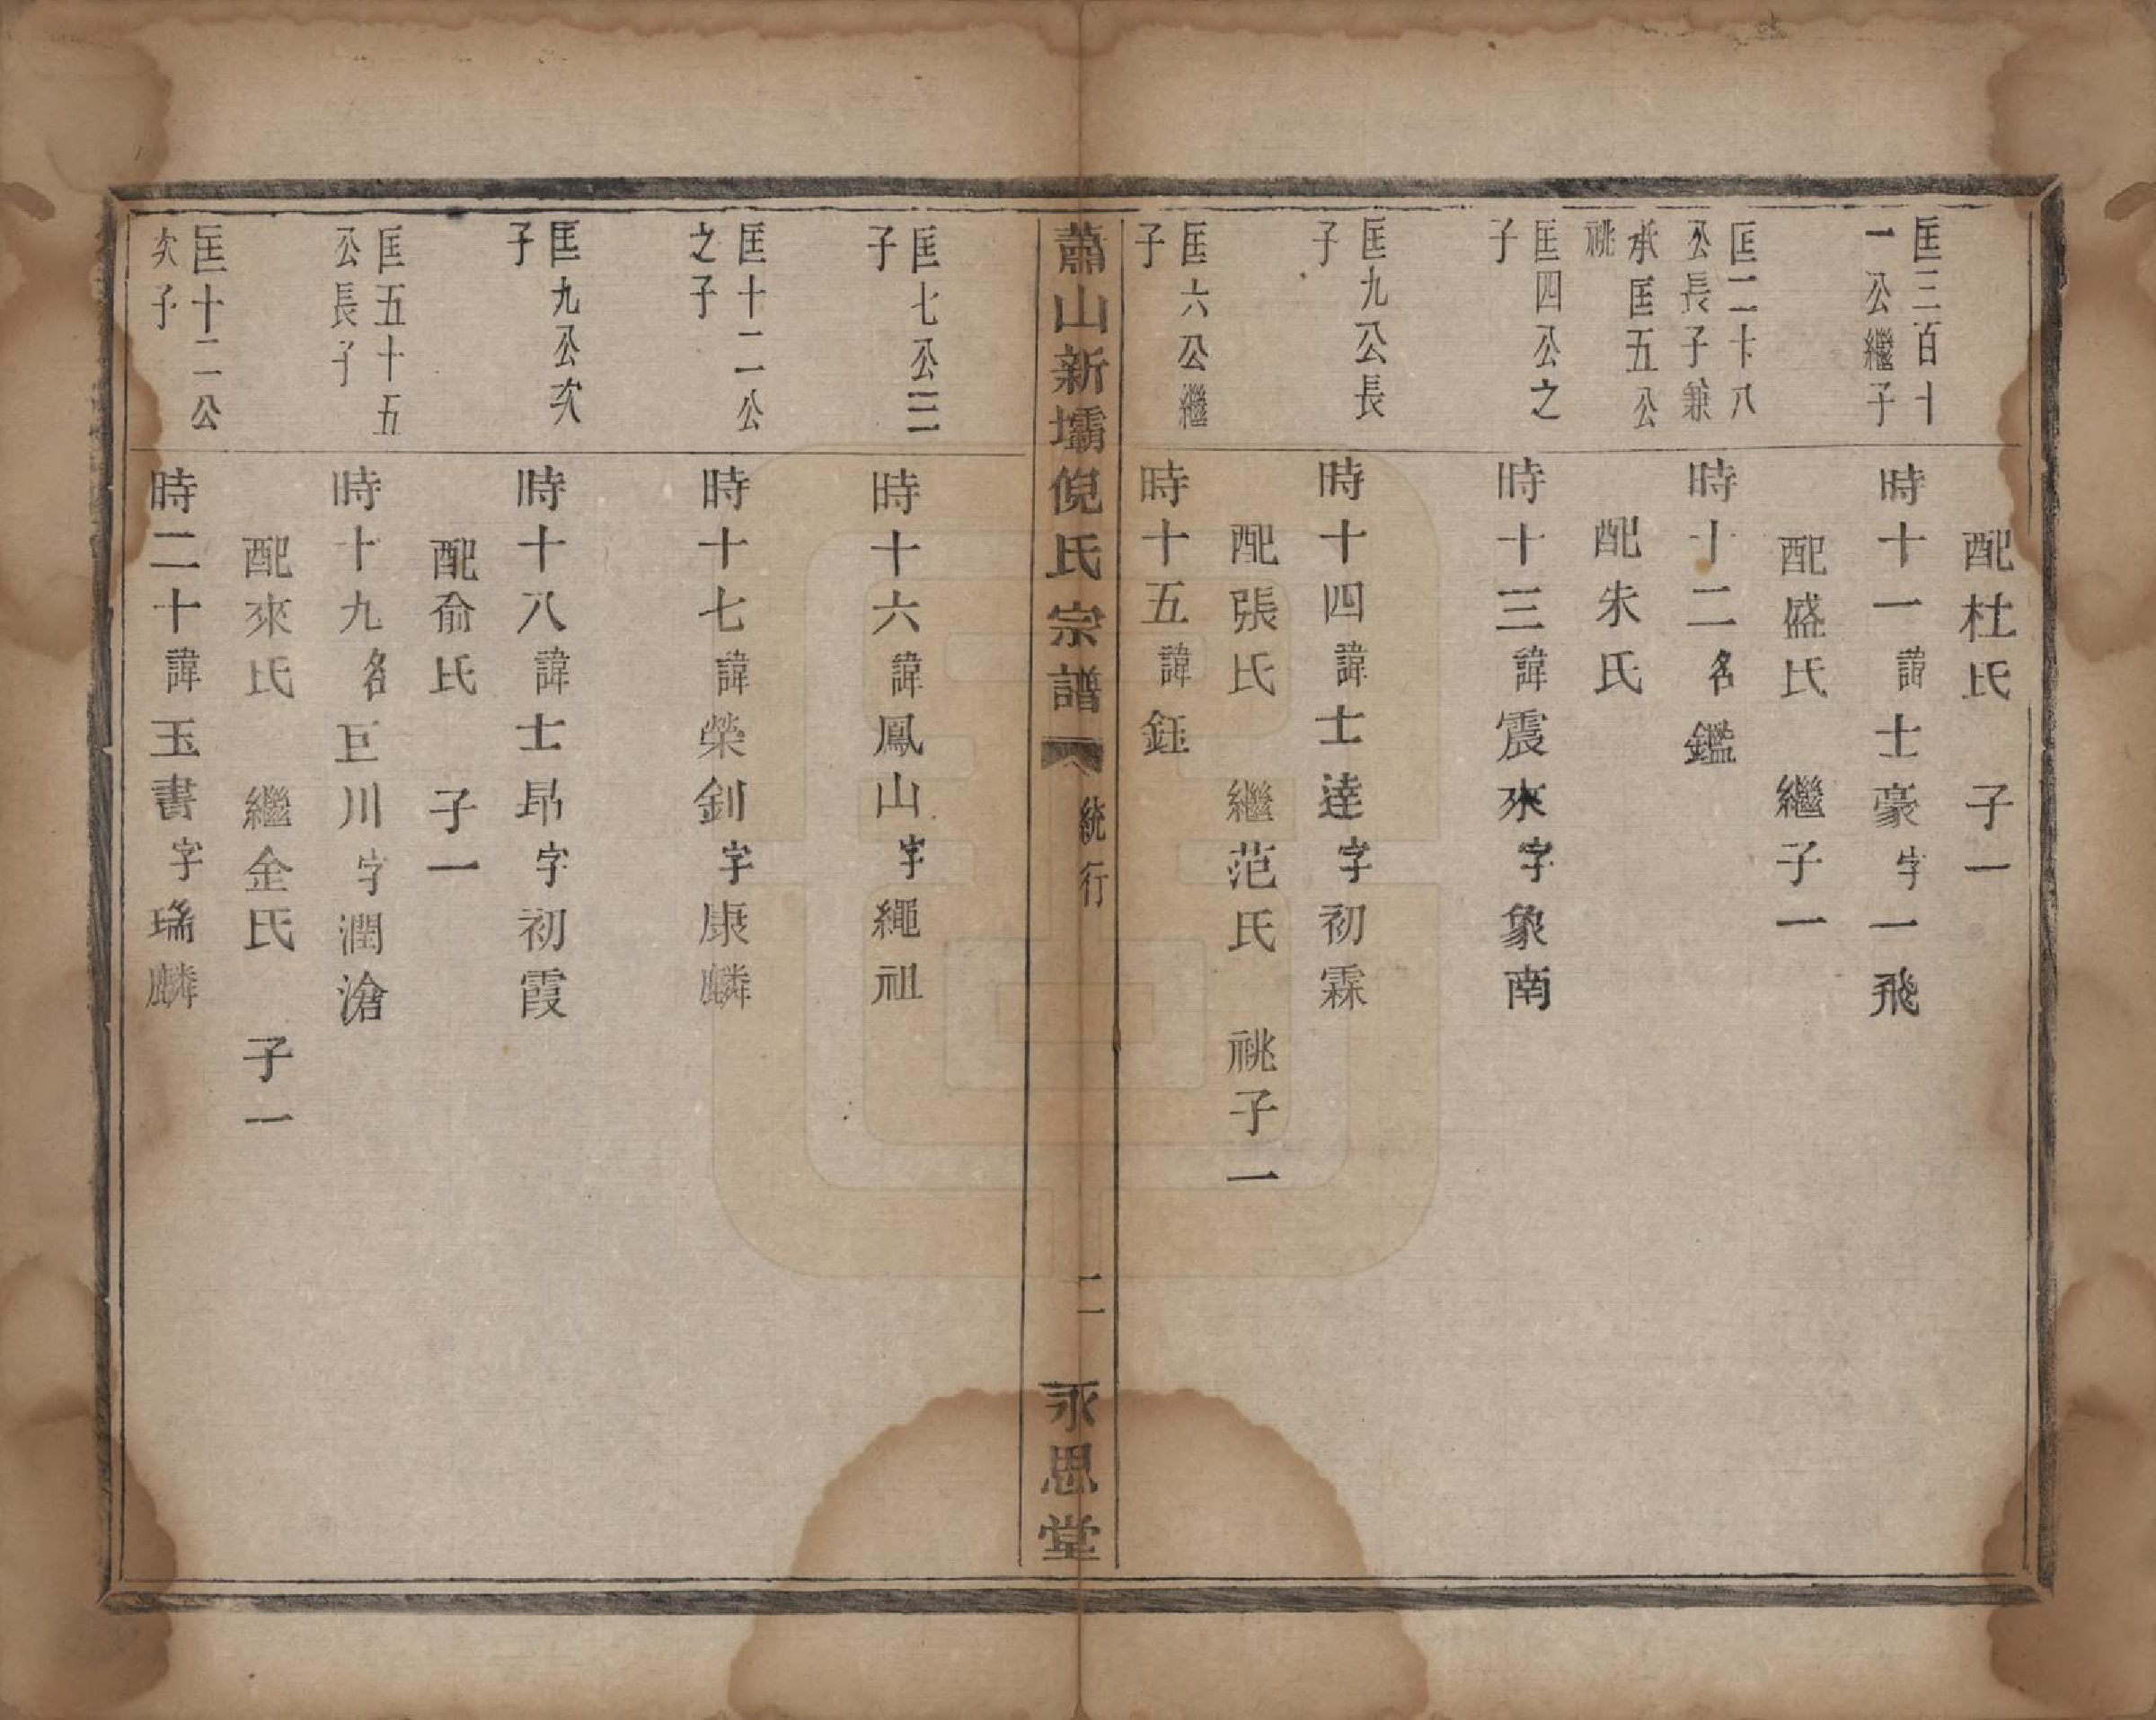 配杜氏　子一
匡三百十
一公繼子
時十一諱士豪字一飛
配盛氏　繼子一
匡二十八
公長子兼
時十二名鑑
承匡五公
祧
配朱氏
匡四公之
子
時十三諱震來字象南
匡九公長
子
時十四諱士達字初霖
配張氏　繼范氏　祧子一
匡六公繼
子
時十五諱鈺
蕭山新壩倪氏宗譜　統行　二　永思堂
匡七公三
子
時十六諱鳳山字繩祖
匡十二公
之子
時十七諱榮釗字康麟
匡九公次
子
時十八諱士昂字初霞
配俞氏　子一
匡五十五
公長子
時十九名巨川字潤滄
配來氏　繼金氏　子一
匡十二公
次子
時二十諱玉書字瑞麟